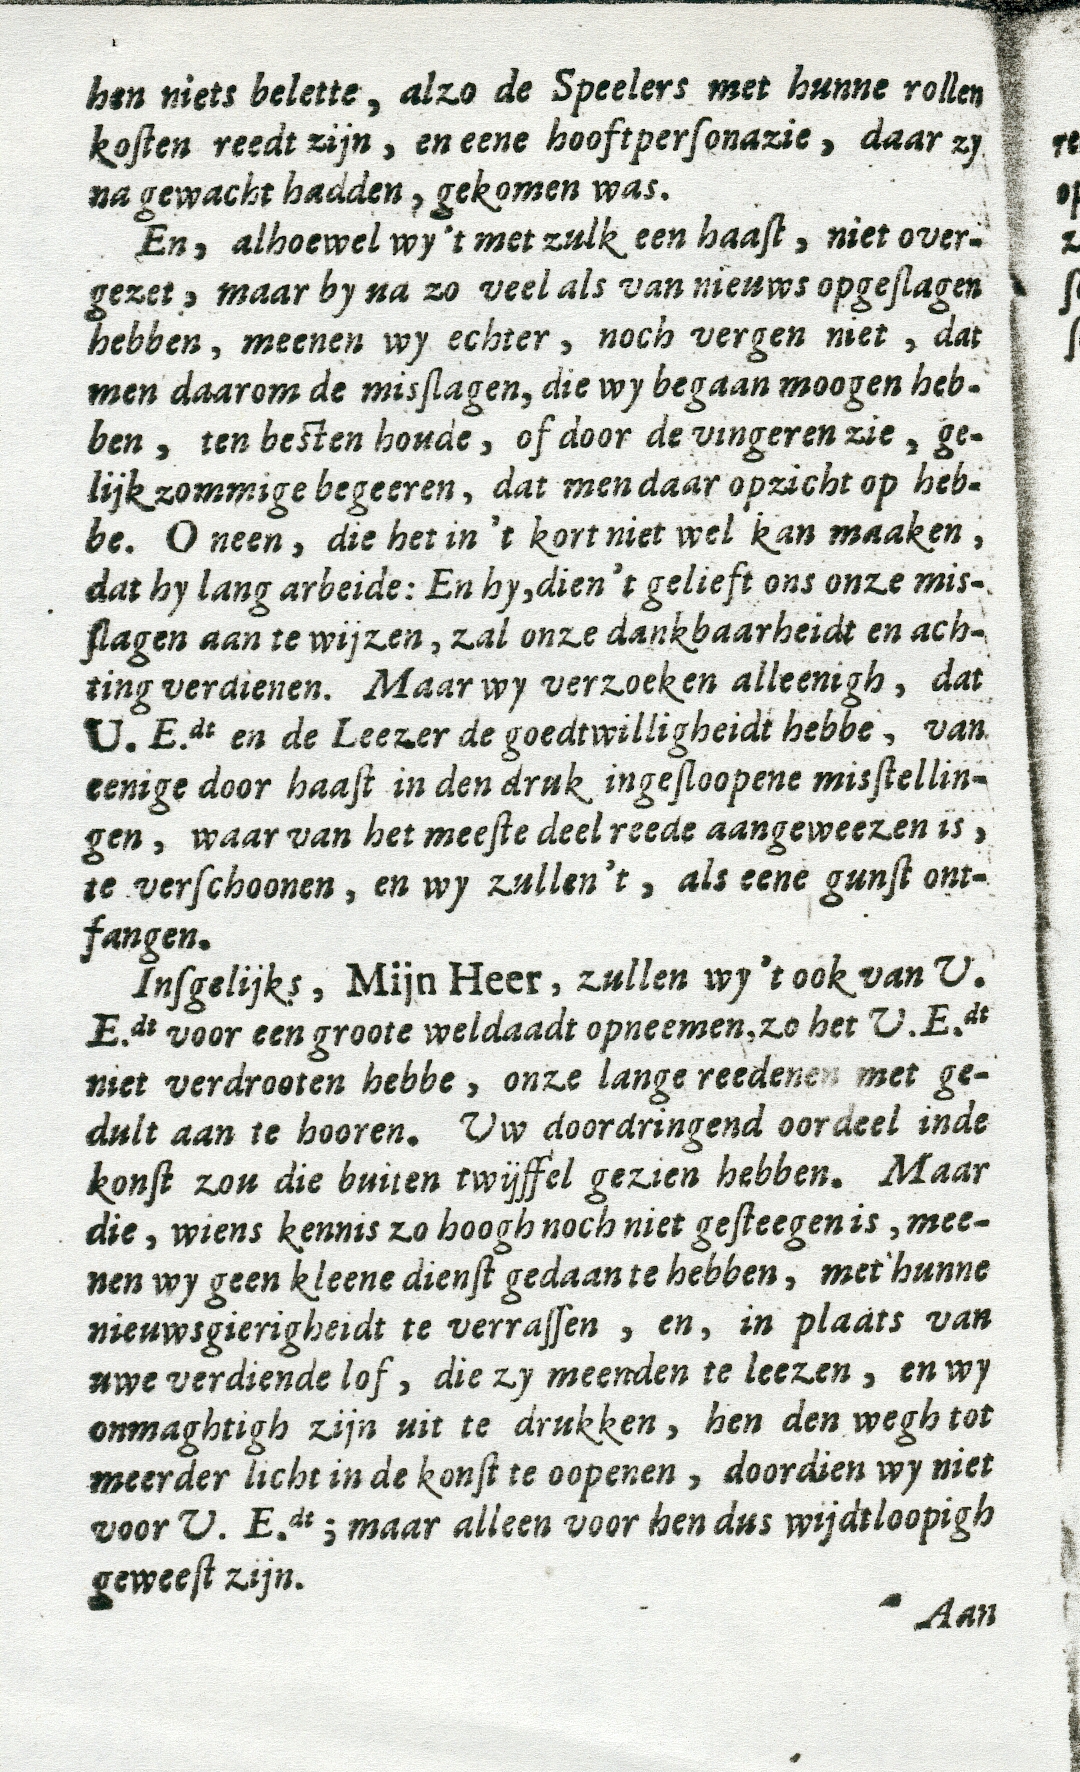 hen niets belette, alzo de Speelers met hunne rollen
koſten reedt zijn, en eene hooftperſonazie, daar zy
na gewacht hadden, gekomen was.
En, alhoewel wy 't met zulk een haaſt, niet over-
gezet, maar by na zo veel als van nieuws opgeſlagen
hebben, meenen wy echter, noch vergen niet, dat
men daarom de misſlagen, die wy begaan moogen heb-
ben, ten besten houde, of door de vingeren zie, ge-
lijk zommige begeeren, dat men daar opzicht op heb-
be. O neen, die het in 't kort niet wel kan maaken,
dat hy lang arbeide: En hy, dien 't gelieft ons onze mis-
ſlagen aan te wijzen, zal onze dankbaarheidt en ach-
ting verdienen. Maar wy verzoeken alleenigh, dat
U. E.dt en de Leezer de goedtwilligheidt hebbe, van
eenige door haaſt in den druk ingeſloopene misſtellin-
gen, waar van het meeſte deel reede aangeweezen is,
te verſchoonen, en wy zullen 't, als eene gunſt ont-
fangen.
Inſgelijks, Mijn Heer, zullen wy 't ook van U.
E.dt voor een groote weldaadt opneemen, zo het U. E.dt
niet verdrooten hebbe, onze lange reedenen met ge-
dult aan te hooren. Uw doordringend oordeel inde
konſt zou die buiten twijffel gezien hebben. Maar
die, wiens kennis zo hoogh noch niet geſteegen is, mee-
nen wy geen kleene dienſt gedaan te hebben, met hunne
nieuwsgierigheidt te verraſſen, en, in plaats van
uwe verdiende lof, die zy meenden te leezen, en wy
onmaghtigh zijn uit te drukken, hen den wegh tot
meerder licht in de konſt te oopenen, doordien wy niet
voor U. E.dt; maar alleen voor hen dus wijdtloopigh
geweeſt zijn.
Aan